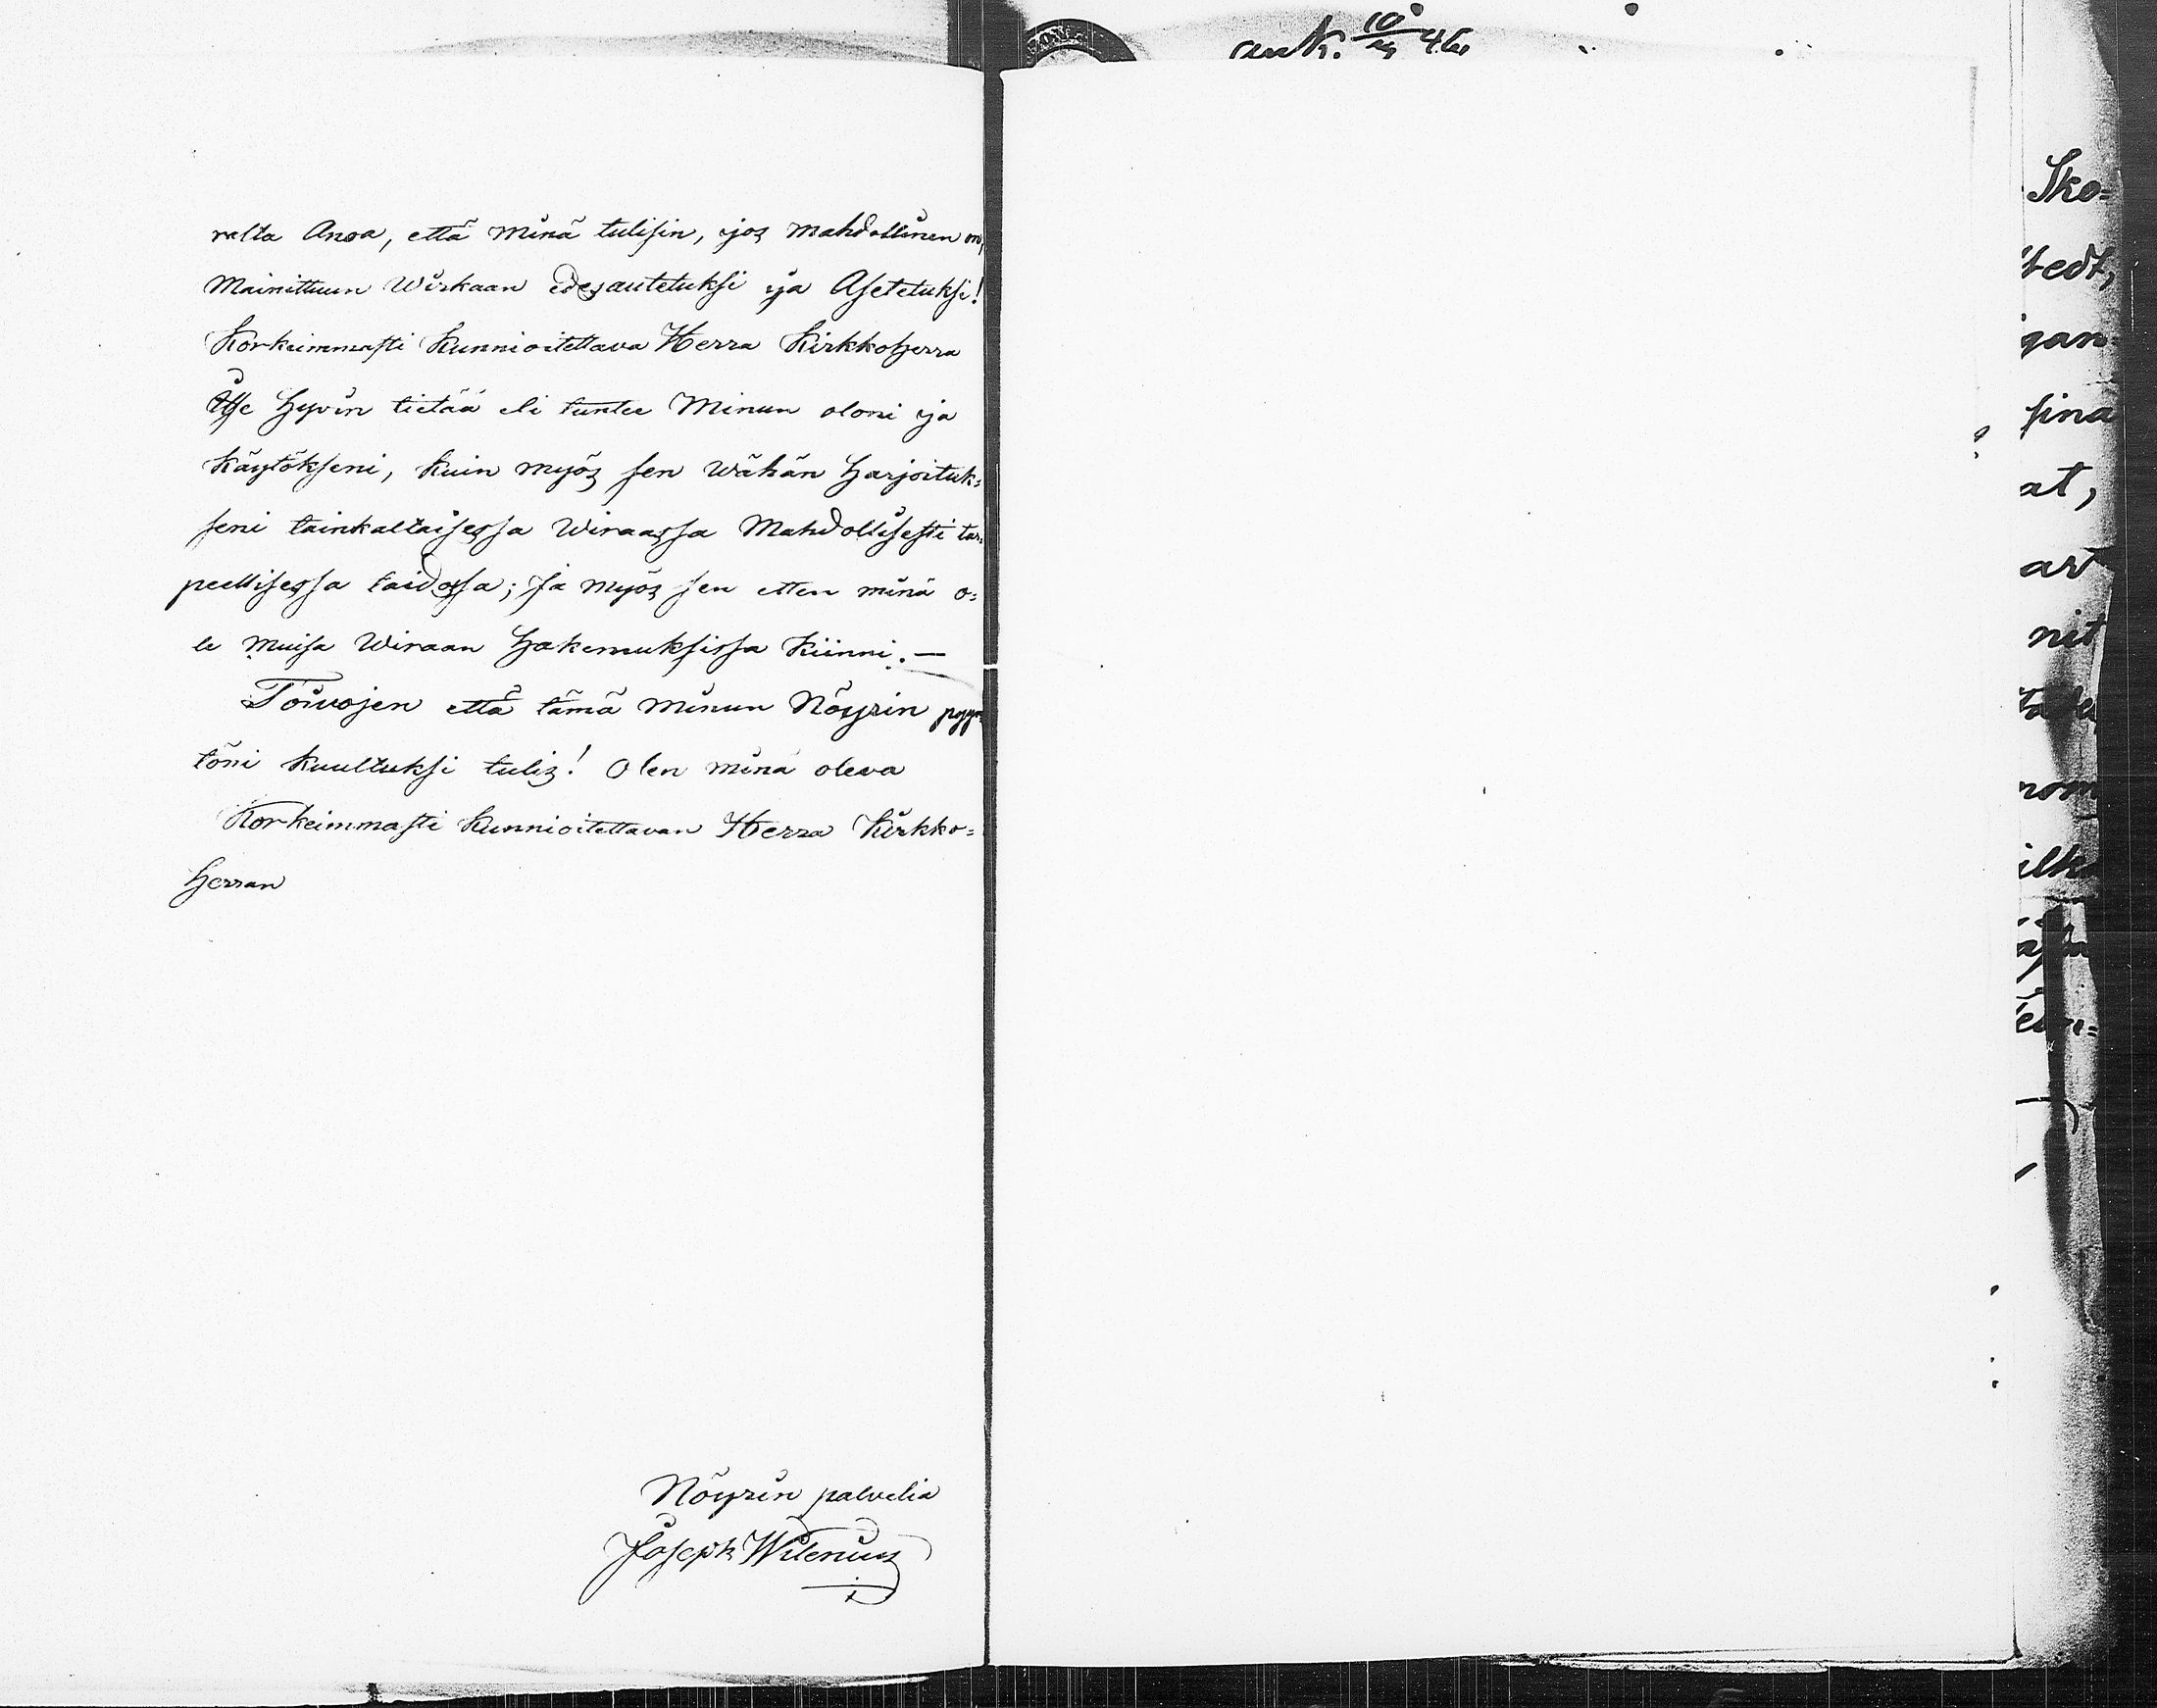 ralta Anoa, että minä tulisin, jos mahdollinen on,
Mainittuun Wirkaan edesautetuksi ja Asetetuksi!
Korkeimmasti Kunnioitettava Herra Kirkkoherra
Itse hyvin tietää eli tuntee Minun oloni ja
Käytökseni, kuin myös sen wähän harjoituk=
seni tainkaltaisessa Wiraassa Mahdollisesti tar=
peellisessa taidossa; ja myös sen etten minä o=
le muisa Wiraan hakemuksissa kiinni. —
Toivojen että tämä minun Nöyrin pyyn=
töni kuultuksi tulis! Olen minä oleva
Korkeimmasti Kunnioitettavan Herra Kirkko=
herran
Nöyrin palvelia
Joseph Wilenius
ank. 10/4 46
Sko=
tedt,
gan=
sina
at,
ar
nit
nom